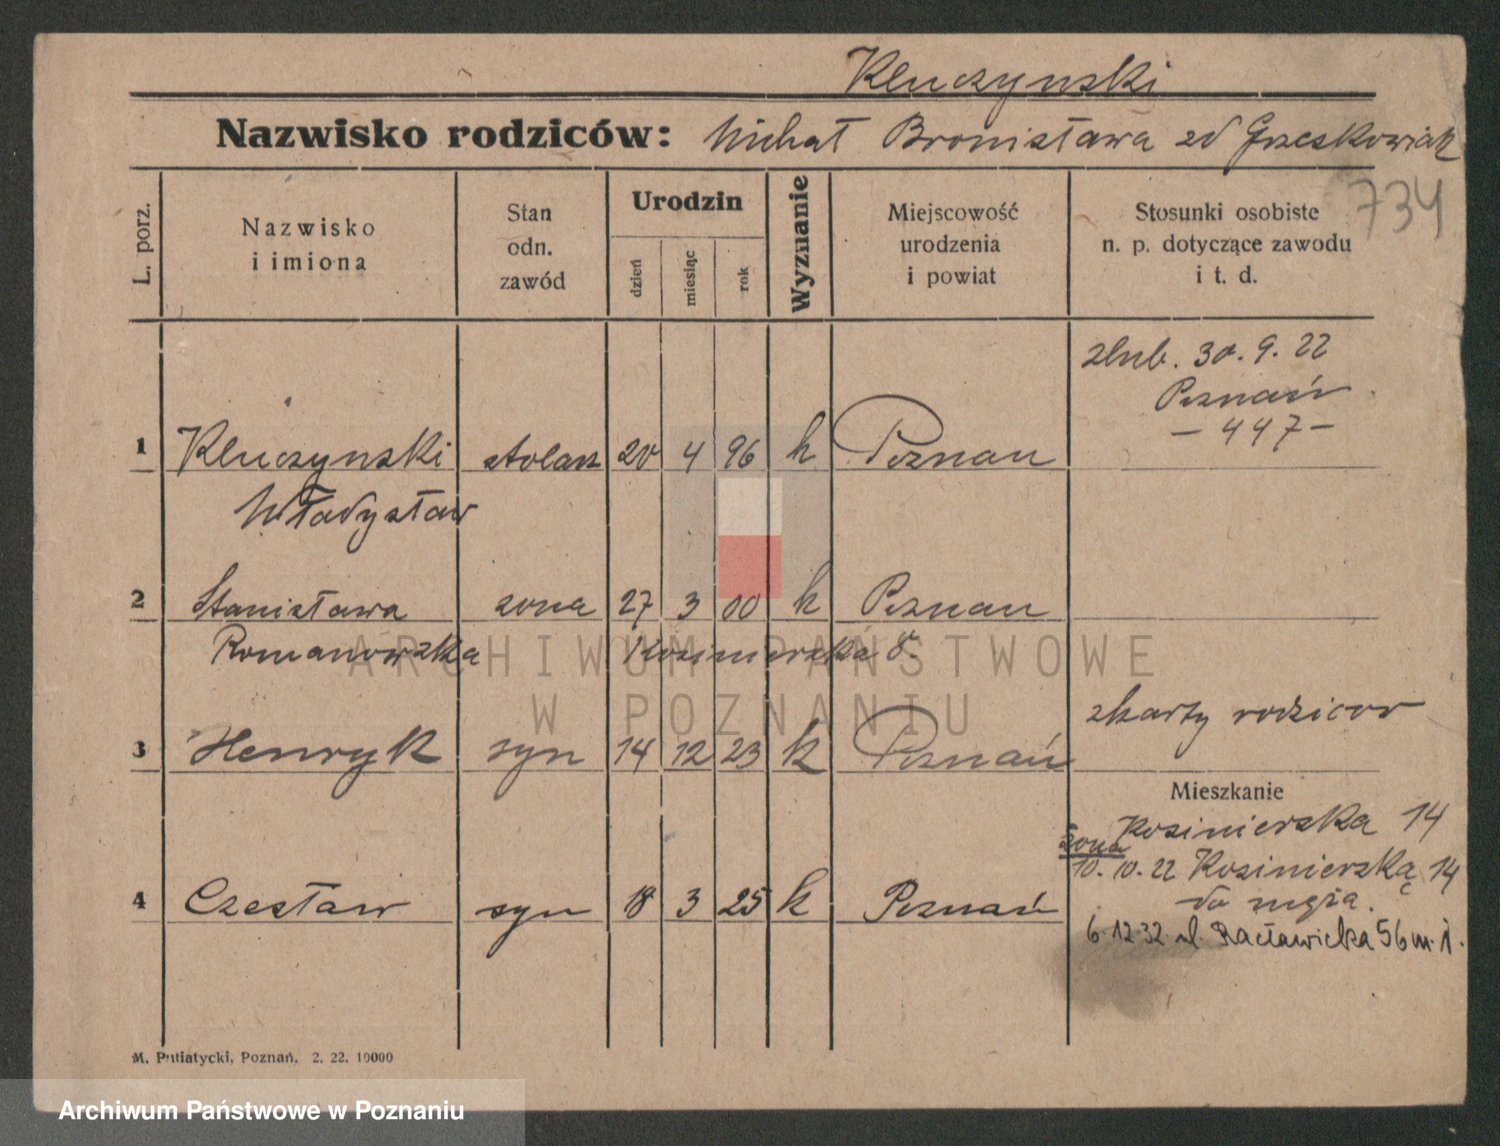 Kluczynski
Nazwisko rodziców: Michał Bronisława zd Grześkowiak
734
L. porz.
Nazwisko i imiona
Stan odn. zawód
Urodzin
dzień miesiąc rok
Wyznanie
Miejscowość urodzenia i powiat
Stosunki osobiste n. p. dotyczące zawodu i t. d.
ślub. 30. 9. 22
Poznań
- 447 -
1 Kluczynski stolarz 20 4 96 k Poznan
Władysław
2 Stanisława zona 27 3 00 k Poznan
Romanowska Kosinierska 8.
zkarty rodzicow
3 Henryk syn 14 12 23 k Poznań
Mieszkanie
Kosinierska 14
żona
10. 10. 22 Kosinierską 14
do męża.
4 Czesław syn 18 3 25 k Poznań
6.12.32 ul. Racławicka 56 m. 1.
M. Putiatycki, Poznań. 2. 22. 10000
ARCHIWUM PAŃSTWOWE
W POZNANIU
Archiwum Państwowe w Poznaniu